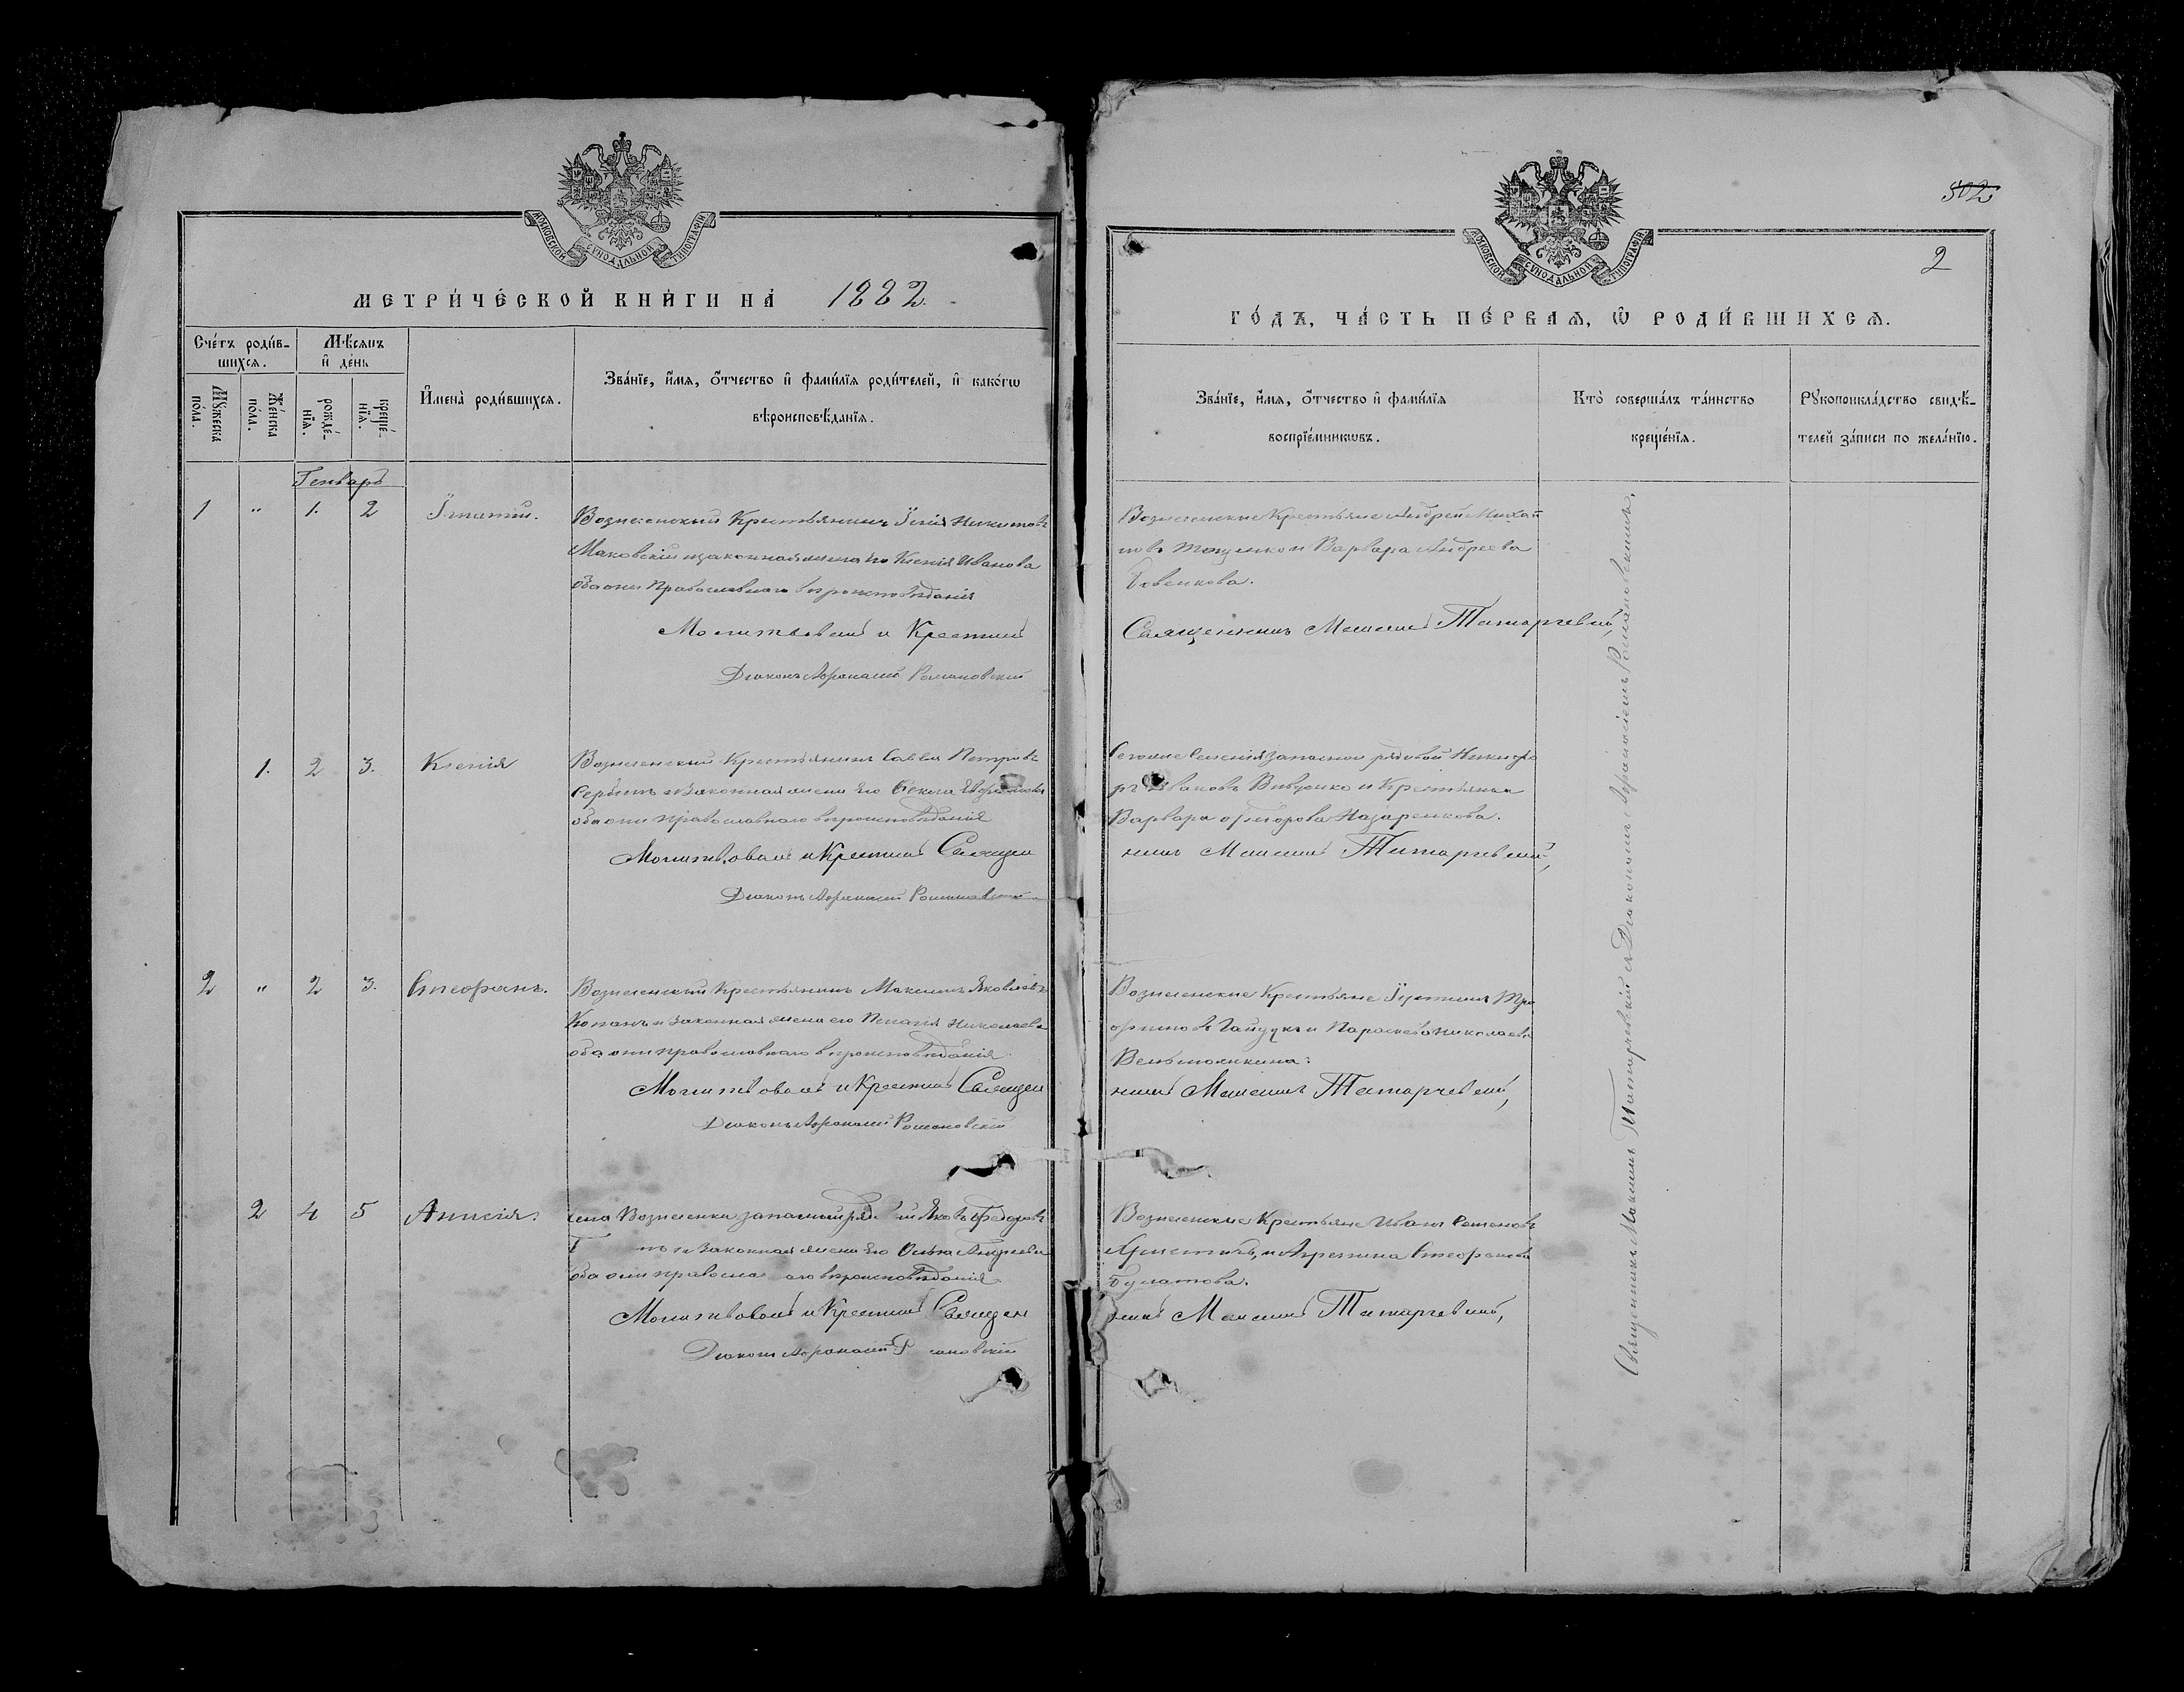 МОСКОВСКОЙ СѴНОДАЛЬНОЙ ТИПОГРАФІИ
МЕТРИ́ЧЕСКОЙ КНИ́ГИ НА̀ 1882.
Сче́тъ роди́вшихсѧ.
Мѣ́сѧцъ и҆ де́нь
Мꙋ́жеска по́ла.
Же́нска по́ла.
рожде́нїѧ.
креще́нїѧ.
И҆мена̀ роди́вшихсѧ.
Зва́нїе, и҆́мѧ, ѻ҆́тчество и҆ фами́лїѧ роди́телей, и҆ како́гѡ
вѣроисповѣ́данїѧ.
Генварь
1 " 1. 2 Игнатій.
Вознесенскій Крестьянинъ Никитовъ
Маковскій и законная жена его Ксенія Иванова
оба они Православнаго вѣроисповѣданія
Молитвовалъ и Крестилъ
Діаконъ Афанасій Романовскій
1. 2 3. Ксенія
Вознесенскій Крестьянинъ Савва Петровъ
Сербинъ и законная жена его
оба они православнаго вѣроисповѣданія
Молитвовалъ и Крестилъ Священ
Діаконъ Афанасій Романовскій
2 " 2 3. Стефанъ.
Вознесенскій Крестьянинъ Максимъ Яковлевъ
Копанъ и законная жена его Пелагія Николаева
оба они православнаго вѣроисповѣданія
Молитвовалъ и Крестилъ Священ
Діаконъ Афанасій Романовскій
2 4 5 Анисія.
села Вознесенки запасный рядовой Яковъ Федоровъ
и законная жена его Ольга Андреева
оба они православнаго вѣроисповѣданія
Молитвовалъ и Крестилъ Священ
Діаконъ Афанасій Романовскій
МОСКОВСКОЙ СѴНОДАЛЬНОЙ ТИПОГРАФІИ
502
2
ГО́ДЪ, ЧА́СТЬ ПЕ́РВАѦ, Ѡ҆ РОДИ́ВШИХСѦ.
Зва́нїе, и҆́мѧ, ѻ҆́тчество и҆ фами́лїѧ
воспрїе́мникѡвъ.
Кто̀ соверша́лъ та́инство
креще́нїѧ.
Рꙋкоприкла́дство свидѣ́телей за́писи по жела́нїю.
Вознесенскіе Крестьяне Андрей Михай
ловъ и Варвара Андреева
Священникъ Максимъ Татарчевскій,
запасной рядовой Никифо
ръ Ивановъ и Крестьянка
Варвара Федорова Назаренкова.
никъ Максимъ Татарчевскій,
Вознесенскіе Крестьяне Іустинъ Тро
фимовъ Гайдукъ и Параскева Николаева
никъ Максимъ Татарчевскій,
Вознесенскіе Крестьяне Иванъ Семеновъ
и Агрепина Стефанова
Булатова.
никъ Максимъ Татарчевскій,
Священникъ Максимъ Татарчевскій съ Діакономъ Афанасіемъ Романовскимъ.